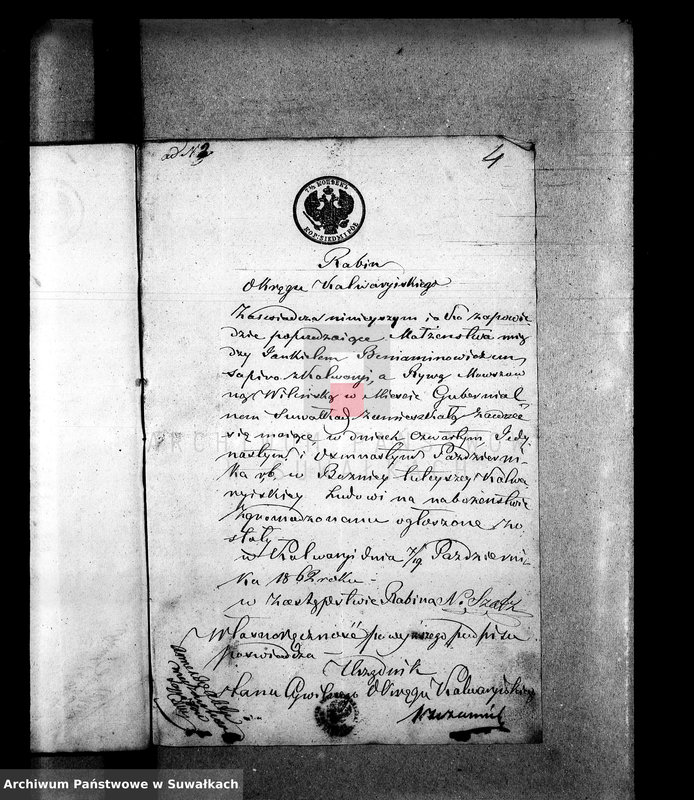 ad N 2
4
7½ KOPIEEK
KOP: SIEDM I PÓŁ
Rabin
Okręgu Kalwaryiskiego
Zaswiadcza ninieyszym iż 3ch zapowie
dzie poprzedzaiące Małżenstwa mię
dzy Jankielem Beniaminowiczem
Sapiro z Kalwaryi, a Rywą Mowszow
ną Wilenską w Miescie Gubernial
nem Suwałkach zamieszkałą zawrzeć
się maiące, w dniach Czwartym, Jedy
nastym i Osmnastym Październi
ka rb. w Boznicy tuteyszey Kalwa
ryiskiey Ludowi na nabożenstwie
zgromadzonemu ogłoszone zo
stały
w Kalwaryi dnia 7/19 Październi
ka 1862 roku -
w Zastępstwie Rabina
Własnoręczność powyższego podpisu
poswiadcza -
Urzędnik
Stanu Cywilnego Okręgu Kalwaryiskiego
Archiwum Państwowe w Suwałkach